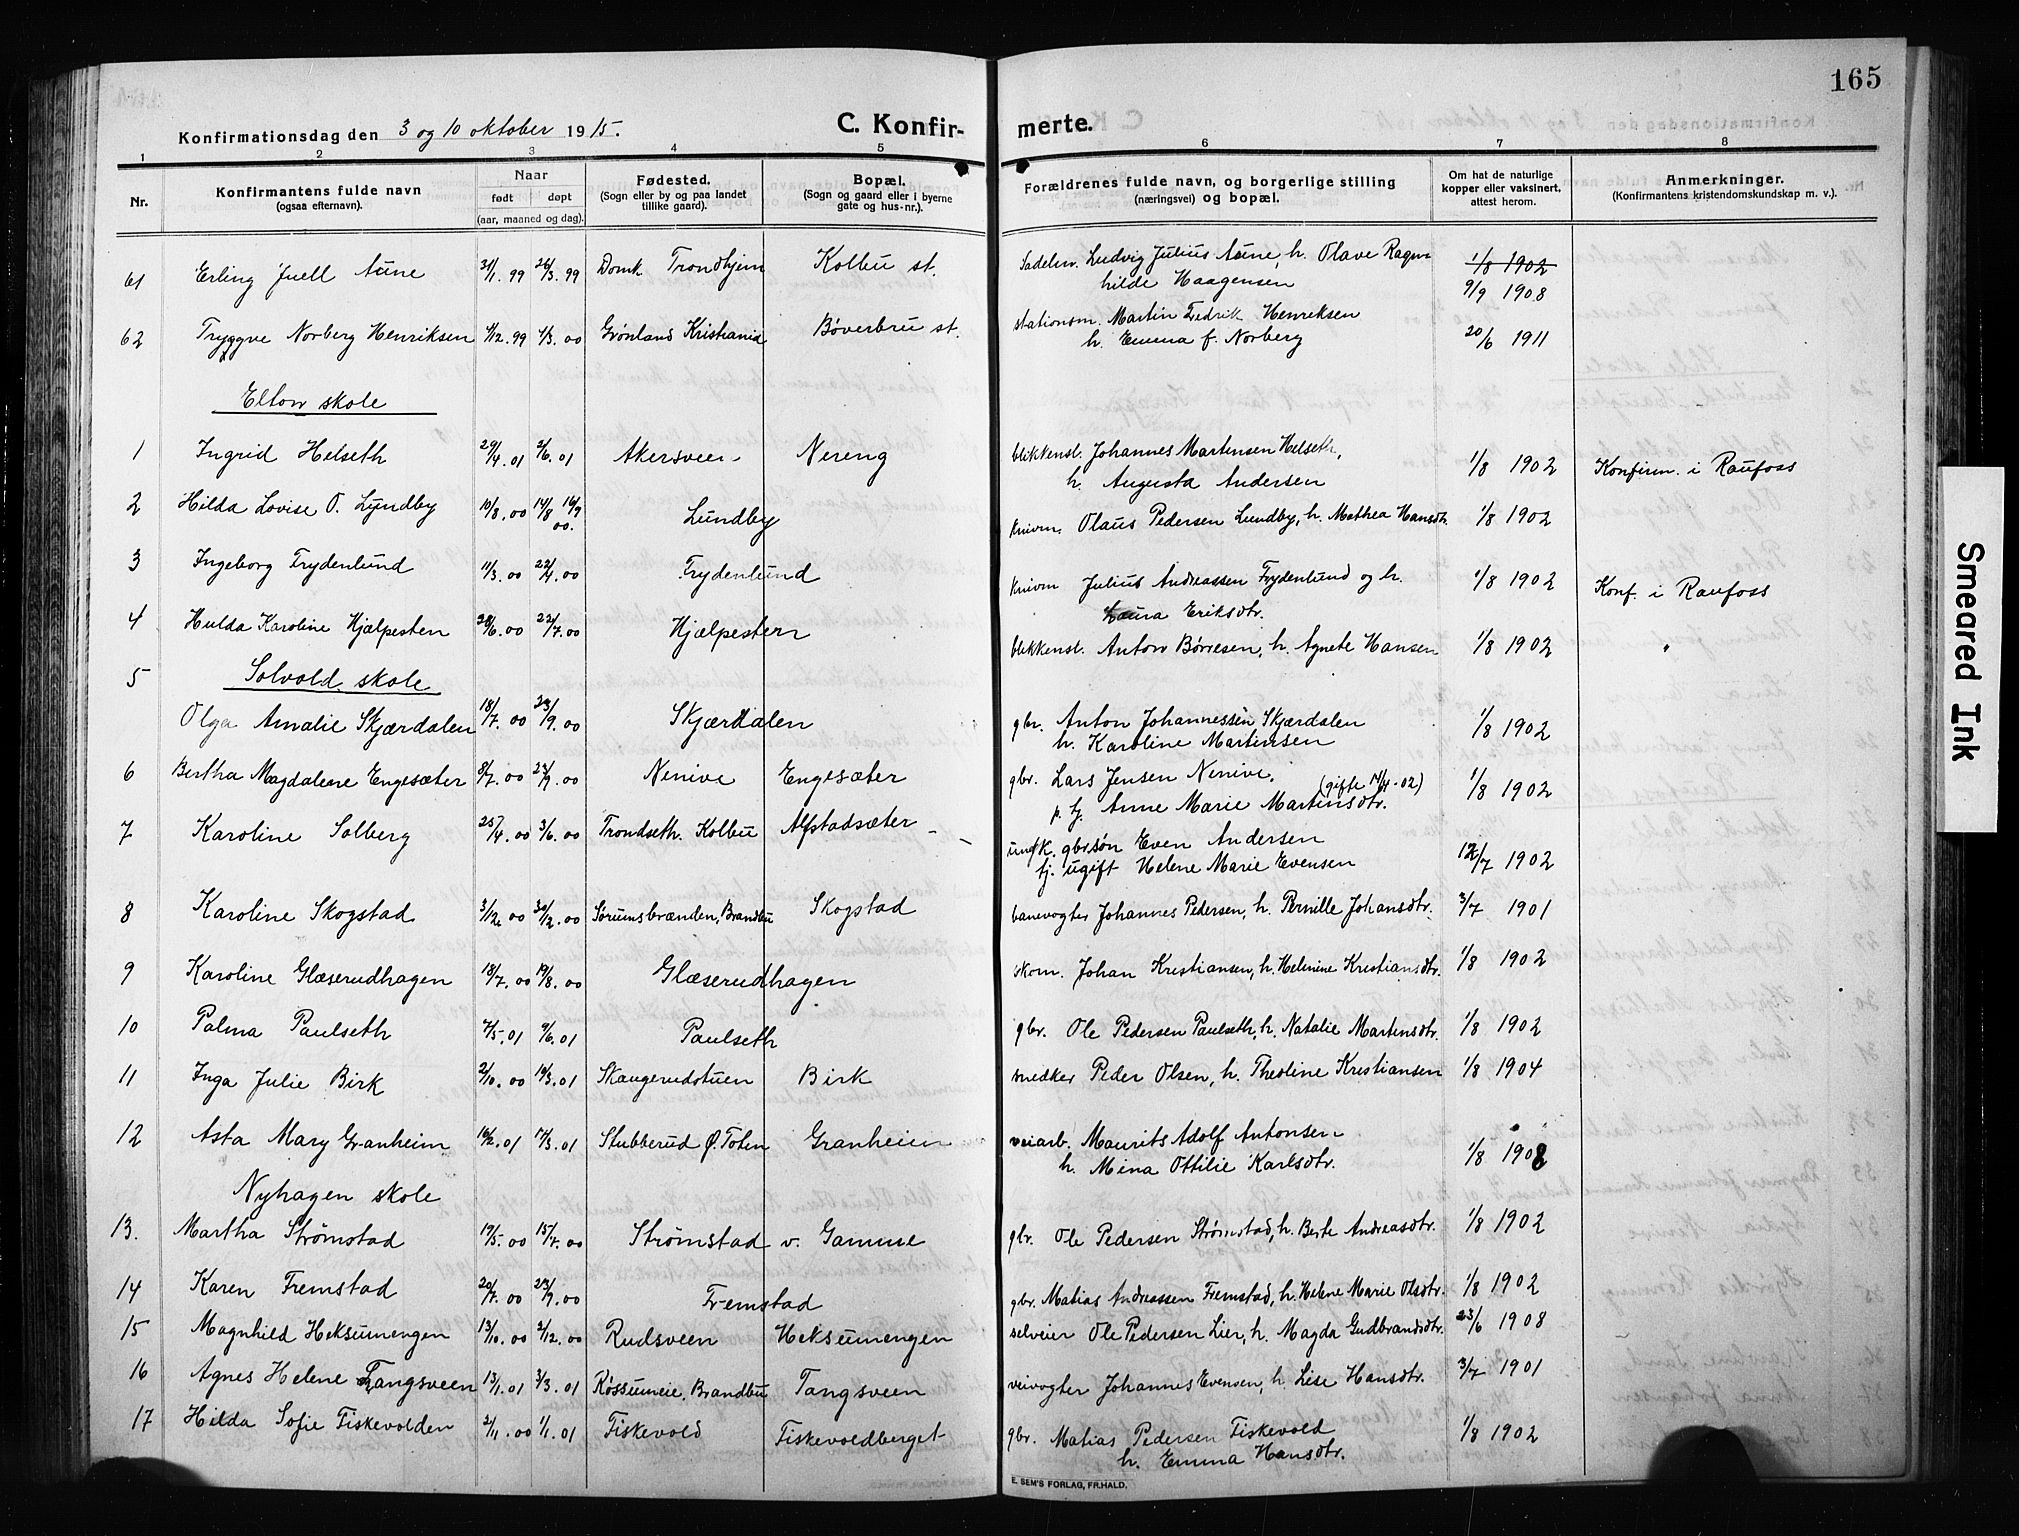 165
Konfirmationsdag den 3 og 10 oktober 1915. C. Konfirmerte.
1 2 3 4 5 6 7 8
Nr. Konfirmantens fulde navn (ogsaa efternavn). Naar født døpt (aar, maaned og dag). Fødested. (Sogn eller by og paa landet tillike gaard). Bopæl. (Sogn og gaard eller i byerne gate og hus-nr.). Forældrenes fulde navn, og borgerlige stilling (næringsvei) og bopæl. Om hat de naturlige kopper eller vaksinert. attest herom. Anmerkninger. (Konfirmantens kristendomskundskap m. v.).
61 Erling Juell Aune 31/1.99 26/3.99 Domk Trondhjem Kolbu st. Sadelm. Ludvig Julius Aune, h. Olave Ragn- 1/8 1902
hilde Haagensen 9/9 1908
62 Tryggve Norberg Henriksen 4/12.99 4/3.00 Grønland Kristiania Bøverbru st. stationsm. Martin Fredrik Henriksen
h. Emma f. Norberg 20/6 1911
Elton skole
1 Ingrid Helseth 29/4.01 2/6.01 Akersveen Nereng blikkensl. Johannes Martinsen Helseth,
h. Augusta Andersen 1/8 1902 Konfirm. i Raufoss
2 Hilda Lovise O. Lundby 10/8.00 14/8 16/9 00. Lundby knivm. Olaus Pedersen Lundby, h. Mathea Hansdtr. 1/8 1902
3 Ingeborg Frydenlund 11/3.00 22/4.00 Frydenlund knivm Julius Andreassen Frydenlund og h. 1/8 1902 Konf. i Raufoss
Laura Eriksdtr.
4 Hulda Karoline Hjælpesten 28/6.00 22/7.00 Hjælpesten blikkensl. Anton Børresen, h. Agnete Hansen 1/8 1902 "
5 Solvold skole
Olga Amalie Skjærdalen 18/7.00 23/9.00 Skjærdalen gbr. Anton Johannessen Skjærdalen
h. Karoline Martinsen 1/8 1902
6 Bertha Magdalene Engesæter 8/7.00 23/9.00 Nenive Engesæter gbr. Lars Jensen Nenive, (gifte 14/4-02)
p. tj. Anne Marie Martinsdtr. 1/8 1902
7 Karoline Solberg 25/4.00 3/6.00 Trondseth. Kolbu Alfstadsæter ungk. gbrsøn Even Andersen
tj. ugift Helene Marie Evensen 12/7 1902
8 Karoline Skogstad 3/12.00 30/12.00 Sørumsbrænden, Brandbu Skogstad banevogter Johannes Pedersen, h. Pernille Johansdtr. 3/7 1901
9 Karoline Glæserudhagen 18/7.00 19/8.00 Glæserudhagen skom. Johan Kristiansen, h. Helmine Kristiansdtr. 1/8 1902
10 Palma Paulseth 7/5.01 9/6.01 Paulseth gbr. Ole Pedersen Paulseth, h. Natalie Martinsdtr. 1/8 1902
11 Inga Julie Birk 2/10.00 10/3.01 Skaugerudstuen Birk snedker Peder Olsen, h. Theoline Kristiansen 1/8 1904
12 Asta Mary Granheim 16/2.01 17/3.01 Stubberud Ø. Toten Granheim veiarb. Maurits Adolf Antonsen
h. Mina Ottilie Karlsdtr. 1/8 1908
Nyhagen skole
13. Martha Strømstad 19/5.00 15/7.00 Strømstad v. Gamme gbr. Ole Pedersen Strømstad, h. Berte Andreasdtr. 1/8 1902
14 Karen Fremstad 20/7.00 23/9.00 Fremstad gbr. Matias Andreassen Fremstad, h. Helene Marie Olsdtr. 1/8 1902
15 Magnhild Heksumengen 13/10.00 2/12.00 Rudsveen Heksumengen selveier Ole Pedersen Lier, h. Magda Gudbrandsdtr. 23/6 1908
16 Agnes Helene Tangsveen 13/1.01 3/3.01 Røssumeie, Brandbu Tangsveen veivogter Johannes Evensen, h. Lise Hansdtr. 3/7 1901
17 Hilda Sofie Fiskevolden 2/11.00 1/1.01 Fiskevold Fiskevoldberget gbr. Matias Pedersen Fiskevold
h. Emma Hansdtr. 1/8 1902
E. SEM'S FORLAG, FR.HALD.
Smeared Ink